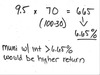 9.5 x 70 = 665
(100-30)
6.65%
muni w/ int > 6.65%
would be higher return